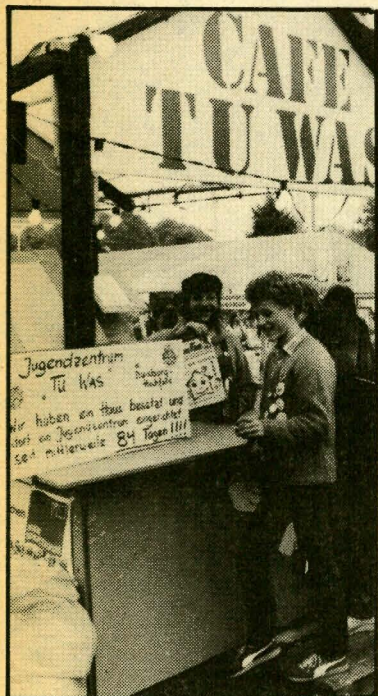 CAFE
TU WAS
Jugendzentrum
"TU WAS" in Duisburg-
Hochfeld
wir haben ein Haus besetzt und
dort ein Jugendzentrum eingerichtet
seit mittlerweile 84 Tagen!!!!